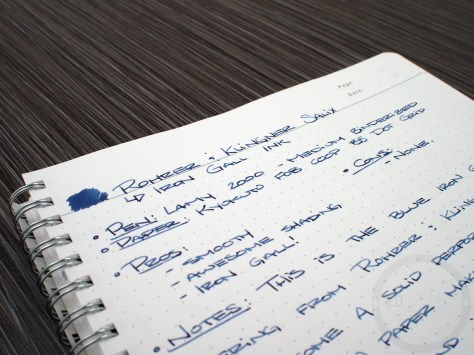 Page:
Date:
Rohrer & Klingner Salix
↳ Iron Gall Ink
• Pen: Lamy 2000 - Medium Binderized
• Paper: Kyokuto FOB COOP B5 Dot Grid
• Pros:
- Smooth
- Awesome shading
- Iron Gall!
• Cons:
- None.
• Notes: This is the blue iron
from Rohrer & Kling
a solid perfor
paper